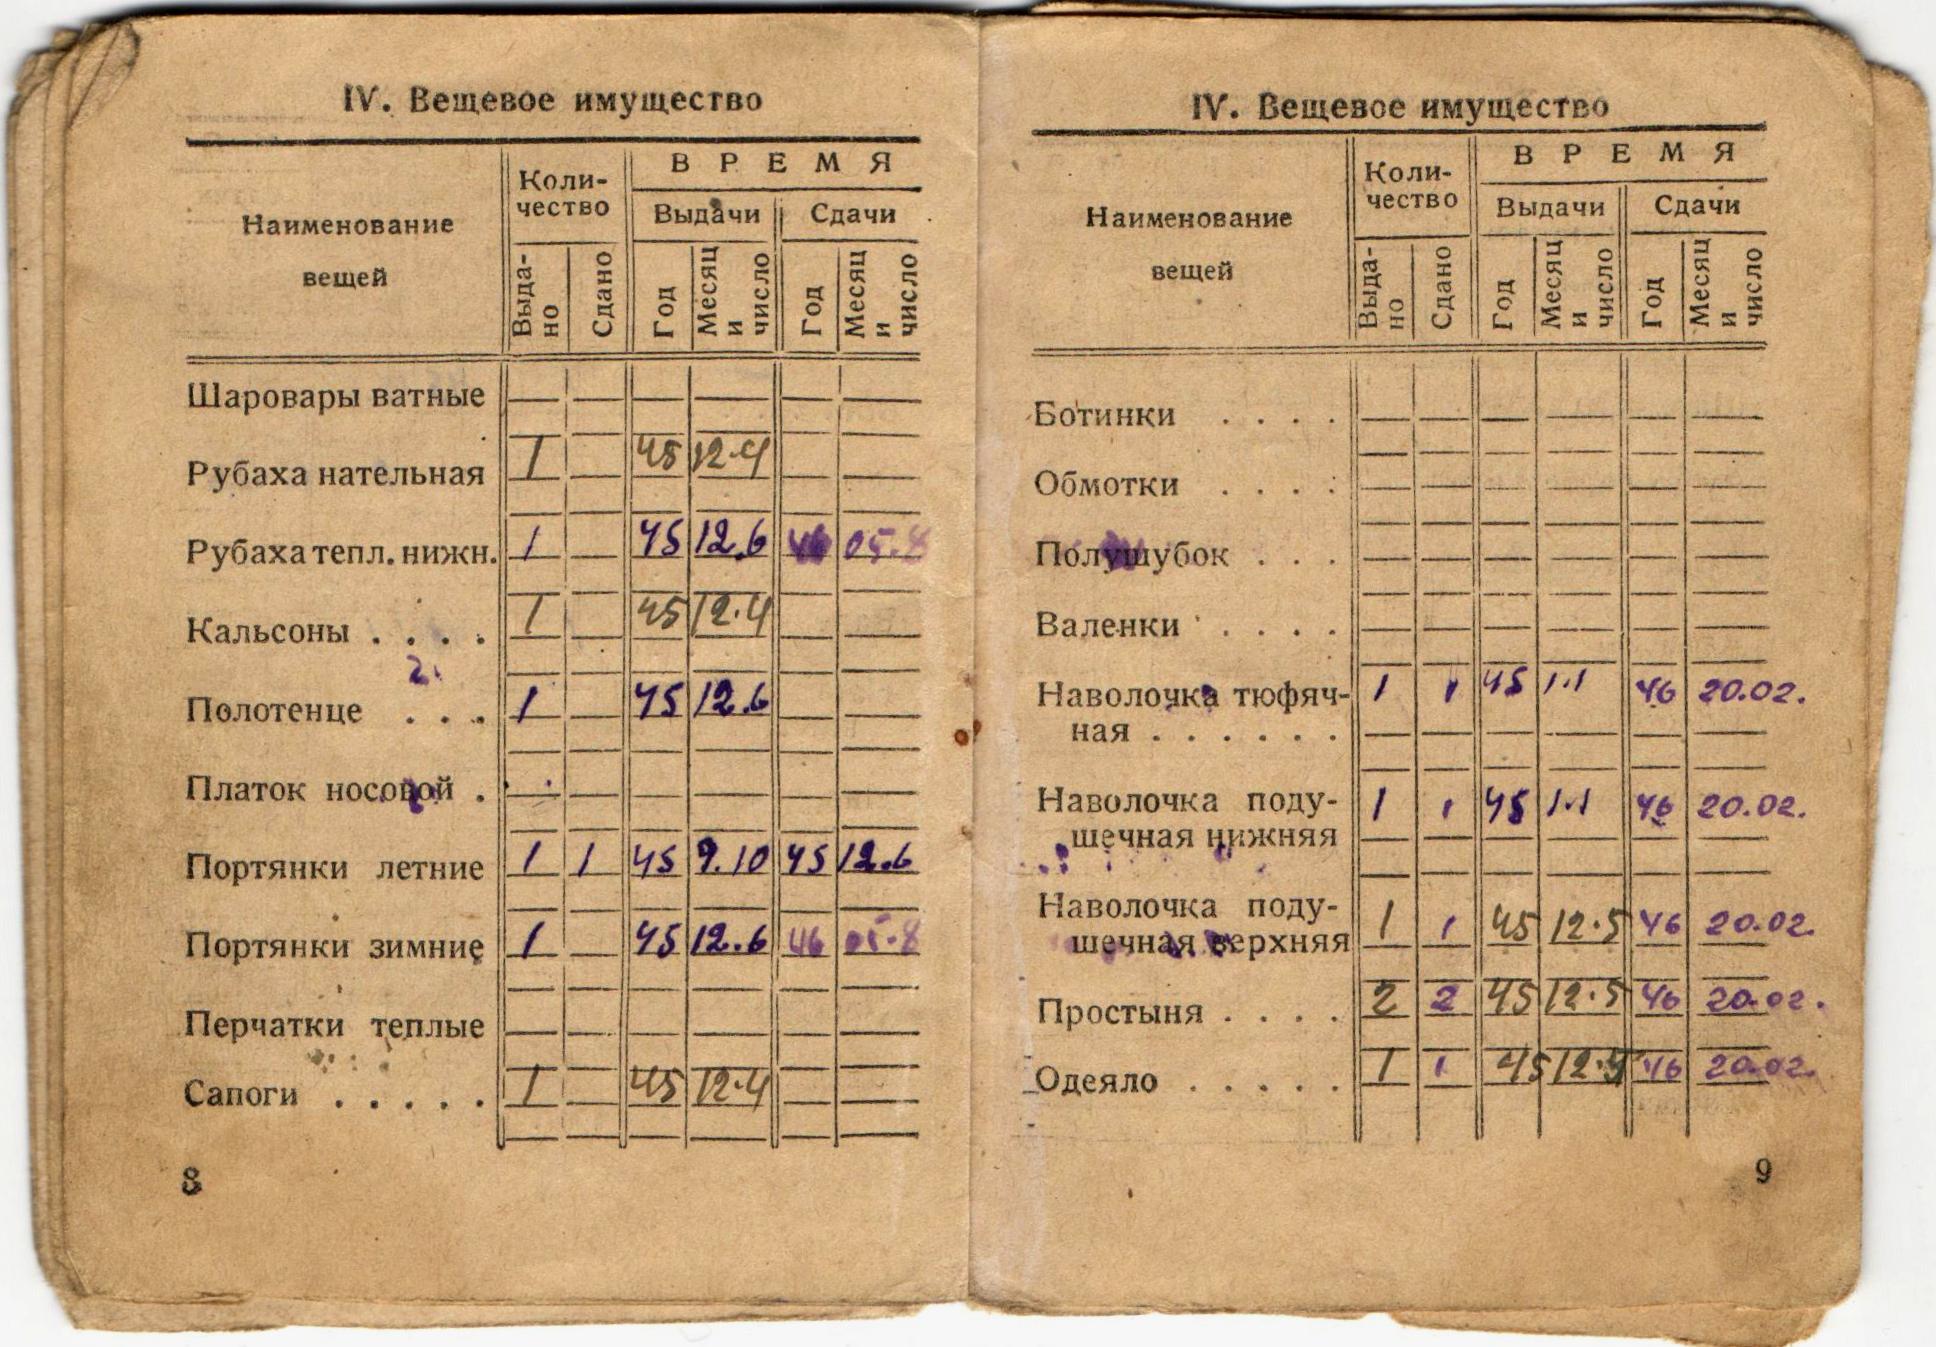 IV. Вещевое имущество
Наименование вещей
Коли-
чество
ВРЕМЯ
Выдачи
Сдачи
Выда-
но
Сдано
Год
Месяц
и
число
Год
Месяц
и
число
Шаровары ватные
Рубаха нательная 1 45 12.4
Рубаха тепл. нижн. 1 45 12.6 46 05.8
Кальсоны . . . . 1 45 12.4
2.
Полотенце . . . 1 45 12.6
Платок носовой .
Портянки летние 1 1 45 9.10 45 12.6
Портянки зимние 1 45 12.6 46 05.8
Перчатки теплые
Сапоги . . . . . 1 45 12.4
8
IV. Вещевое имущество
Наименование вещей
Коли-
чество
ВРЕМЯ
Выдачи
Сдачи
Выда-
но
Сдано
Год
Месяц
и
число
Год
Месяц
и
число
Ботинки . . . .
Обмотки . . . .
Полушубок . . .
Валенки . . . .
Наволочка тюфяч- 1 1 45 1.1 46 20.02.
ная . . . . . .
Наволочка поду- 1 1 45 1.1 46 20.02.
шечная нижняя
Наволочка поду- 1 1 45 12.5 46 20.02.
шечная верхняя
Простыня . . . . 2 2 45 12.5 46 20.02.
Одеяло . . . . . 1 1 45 46 20.02.
9